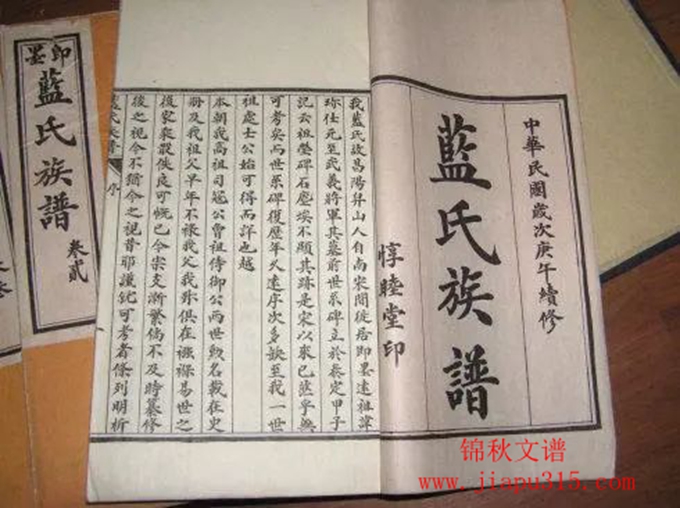 中華民國歲次庚午續修
藍氏族譜
惇睦堂印
我藍氏故昌陽昇山人自南宋間徙居即墨遠祖諱
珎仕元至武義將軍其墓前世系碑立於泰定甲子
記云祖塋碑石塵埃不顯其跡是宋以來已茫乎無
可考矣而世系碑復歷年久遠序次多缺至我一世
祖處士公始可得而詳也越
本朝我高祖司寇公曾祖侍御公兩世勲名載在史
冊及我祖父早年不祿我父我俱在襁褓易世之
後家乘散佚良可慨已今宗支漸繁倘不及時纂修
後之視今不猶今之視昔耶謹就可考者條列明析
藍氏族譜 序
即墨
藍氏族譜
卷貳
锦秋文谱
www.jiapu315.com